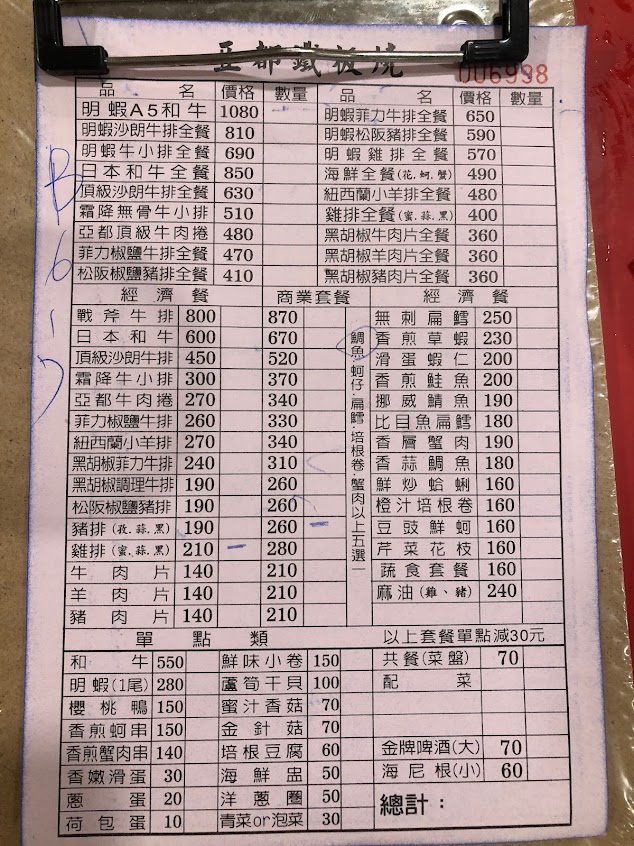 亞都鐵板燒
006998
品名 價格 數量 品名 價格 數量
明蝦A5和牛 1080 明蝦菲力牛排全餐 650
明蝦沙朗牛排全餐 810 明蝦松阪豬排全餐 590
明蝦牛小排全餐 690 明蝦雞排全餐 570
日本和牛全餐 850 海鮮全餐(花.蚵.蟹) 490
頂級沙朗牛排全餐 630 紐西蘭小羊排全餐 480
霜降無骨牛小排 510 雞排全餐(蜜.蒜.黑) 400
亞都頂級牛肉捲 480 黑胡椒牛肉片全餐 360
菲力椒鹽牛排全餐 470 黑胡椒羊肉片全餐 360
松阪椒鹽豬排全餐 410 黑胡椒豬肉片全餐 360
經濟餐 商業套餐 經濟餐
戰斧牛排 800 870 無刺扁鱈 250
日本和牛 600 670 香煎草蝦 230
頂級沙朗牛排 450 520 滑蛋蝦仁 200
霜降牛小排 300 370 香煎鮭魚 200
亞都牛肉捲 270 340 挪威鯖魚 190
菲力椒鹽牛排 260 330 比目魚扁鱈 180
紐西蘭小羊排 270 340 香層蟹肉 190
黑胡椒菲力牛排 240 310 香蒜鯛魚 180
黑胡椒調理牛排 190 260 鮮炒蛤蜊 160
松阪椒鹽豬排 190 260 橙汁培根卷 160
豬排(孜.蒜.黑) 190 260 豆豉鮮蚵 160
雞排(蜜.蒜.黑) 210 280 芹菜花枝 160
牛肉片 140 210 蔬食套餐 160
羊肉片 140 210 麻油(雞、豬) 240
豬肉片 140 210
鯛魚.蚵仔.扁鱈.培根卷.蟹肉以上五選一
單點類 以上套餐單點減30元
和牛 550 鮮味小卷 150 共餐(菜盤) 70
明蝦(1尾) 280 蘆筍干貝 100 配菜
櫻桃鴨 150 蜜汁香菇 70
香煎蚵串 150 金針菇 70
香煎蟹肉串 140 培根豆腐 60 金牌啤酒(大) 70
香嫩滑蛋 30 海鮮盅 50 海尼根(小) 60
蔥蛋 20 洋蔥圈 50 總計：
荷包蛋 10 青菜or泡菜 30